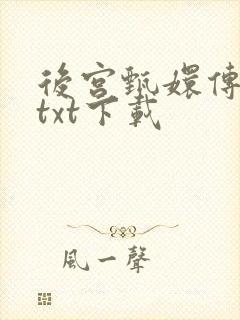 後宮甄嬛傳
txt下載
風一聲